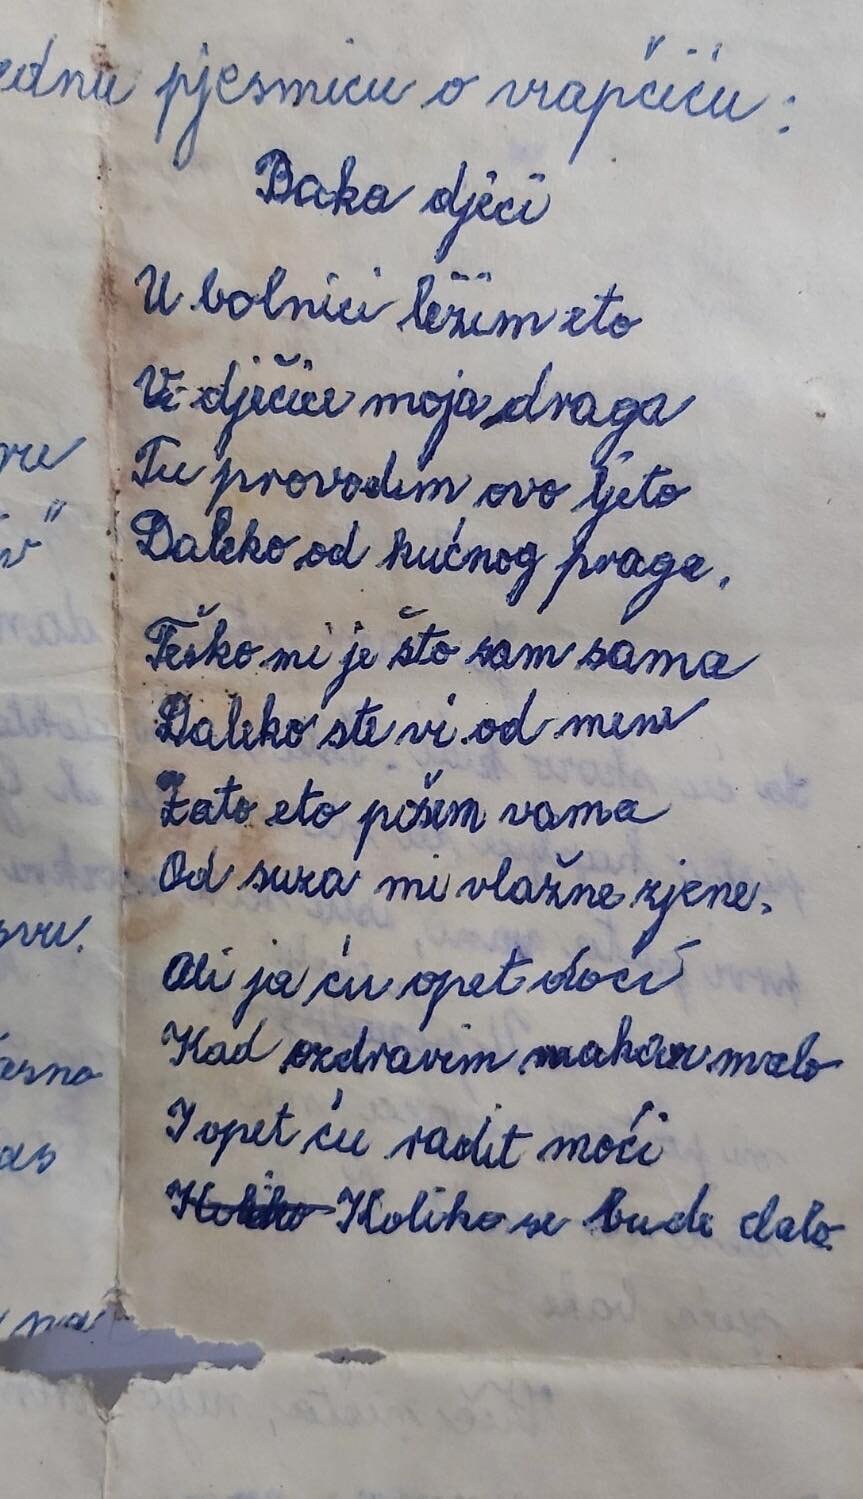 ednu pjesmicu o vrapčiću:
Baka djeci
U bolnici ležim eto
Vi dječice moja draga
Tu provodim ovo ljeto
Daleko od kućnog praga.
Teško mi je što sam sama
Daleko ste vi od mene
Zato eto pišem vama
Od suza mi vlažne zjene.
Ali ja ću opet doći
Kad ozdravim makar malo
I opet ću radit moći
Koliko Koliko se bude dalo.
sve.
as
na